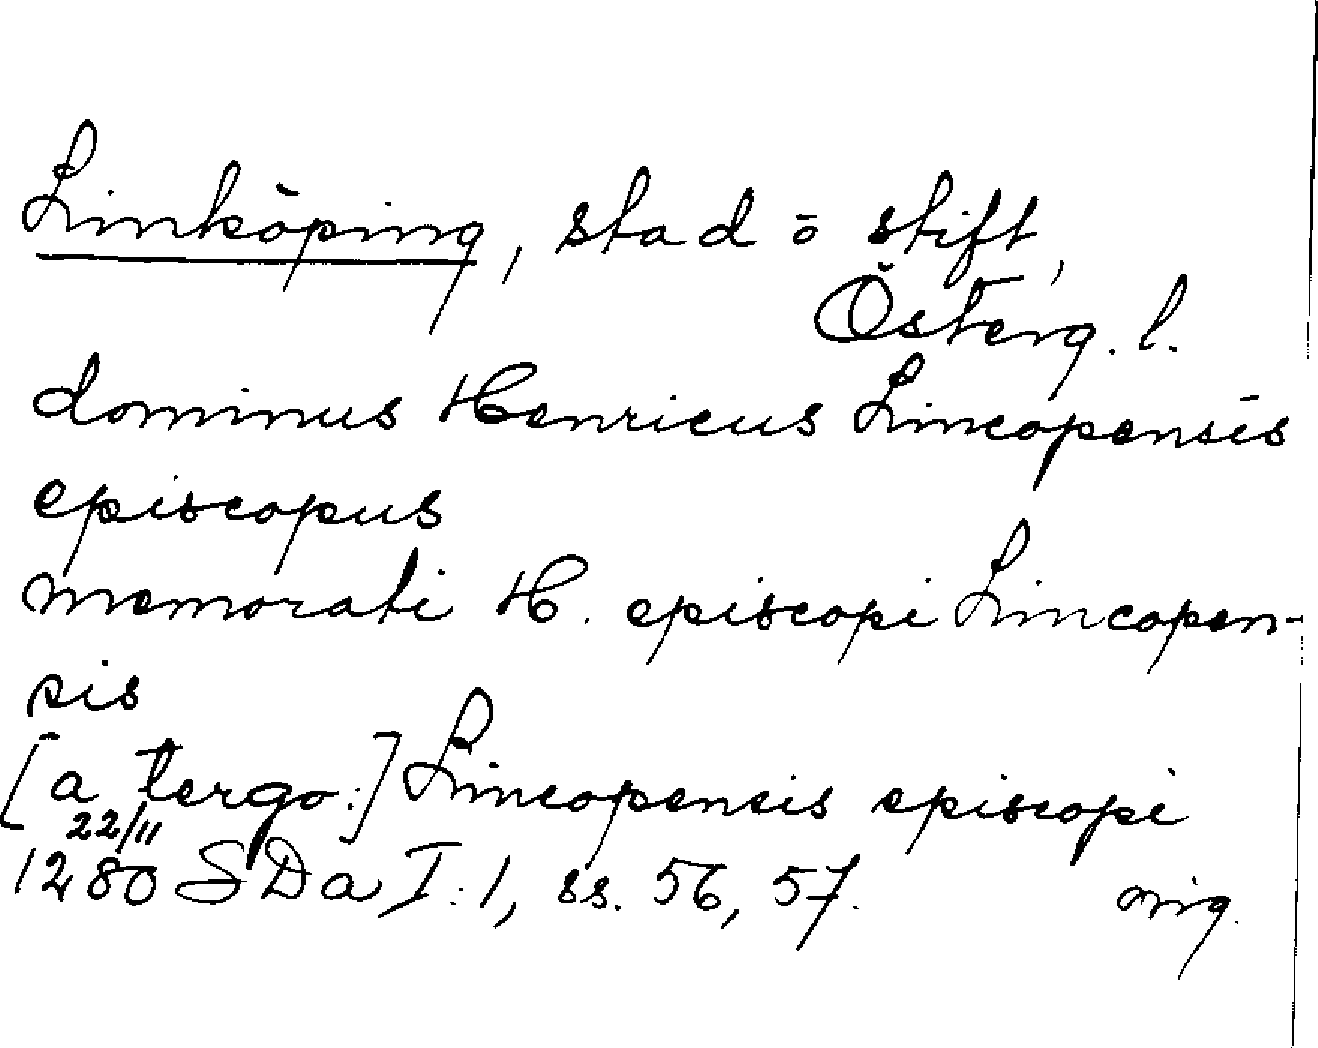 Linköping, stad o stift,
Österg. l.
dominus Henricus Lincopensis
episcopus
memorati H. episcopi Lincopen-
sis
[a tergo:] Lincopensis episcopi
22/11
1280 SDa I:1, ss. 56, 57.